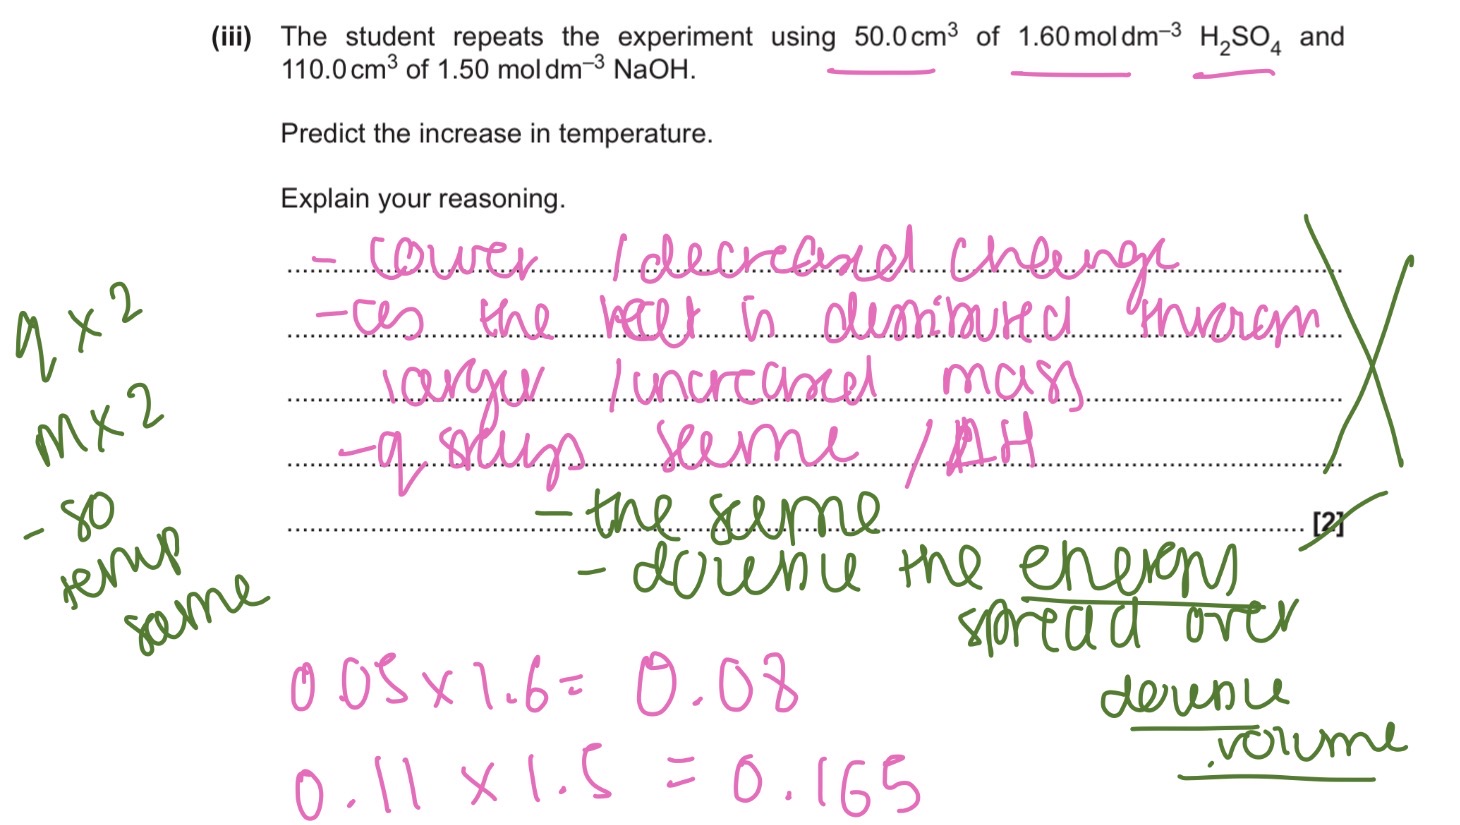 (iii) The student repeats the experiment using 50.0 cm³ of 1.60 mol dm⁻³ H₂SO₄ and
110.0 cm³ of 1.50 mol dm⁻³ NaOH.
Predict the increase in temperature.
Explain your reasoning.
- lower / decreased change
- as the heat is distributed through
larger / increased mass
- q stays same / ΔH
[2]
- the same
- double the energy
spread over
double
volume
q x 2
m x 2
- so
temp
same
0.05 x 1.6 = 0.08
0.11 x 1.5 = 0.165